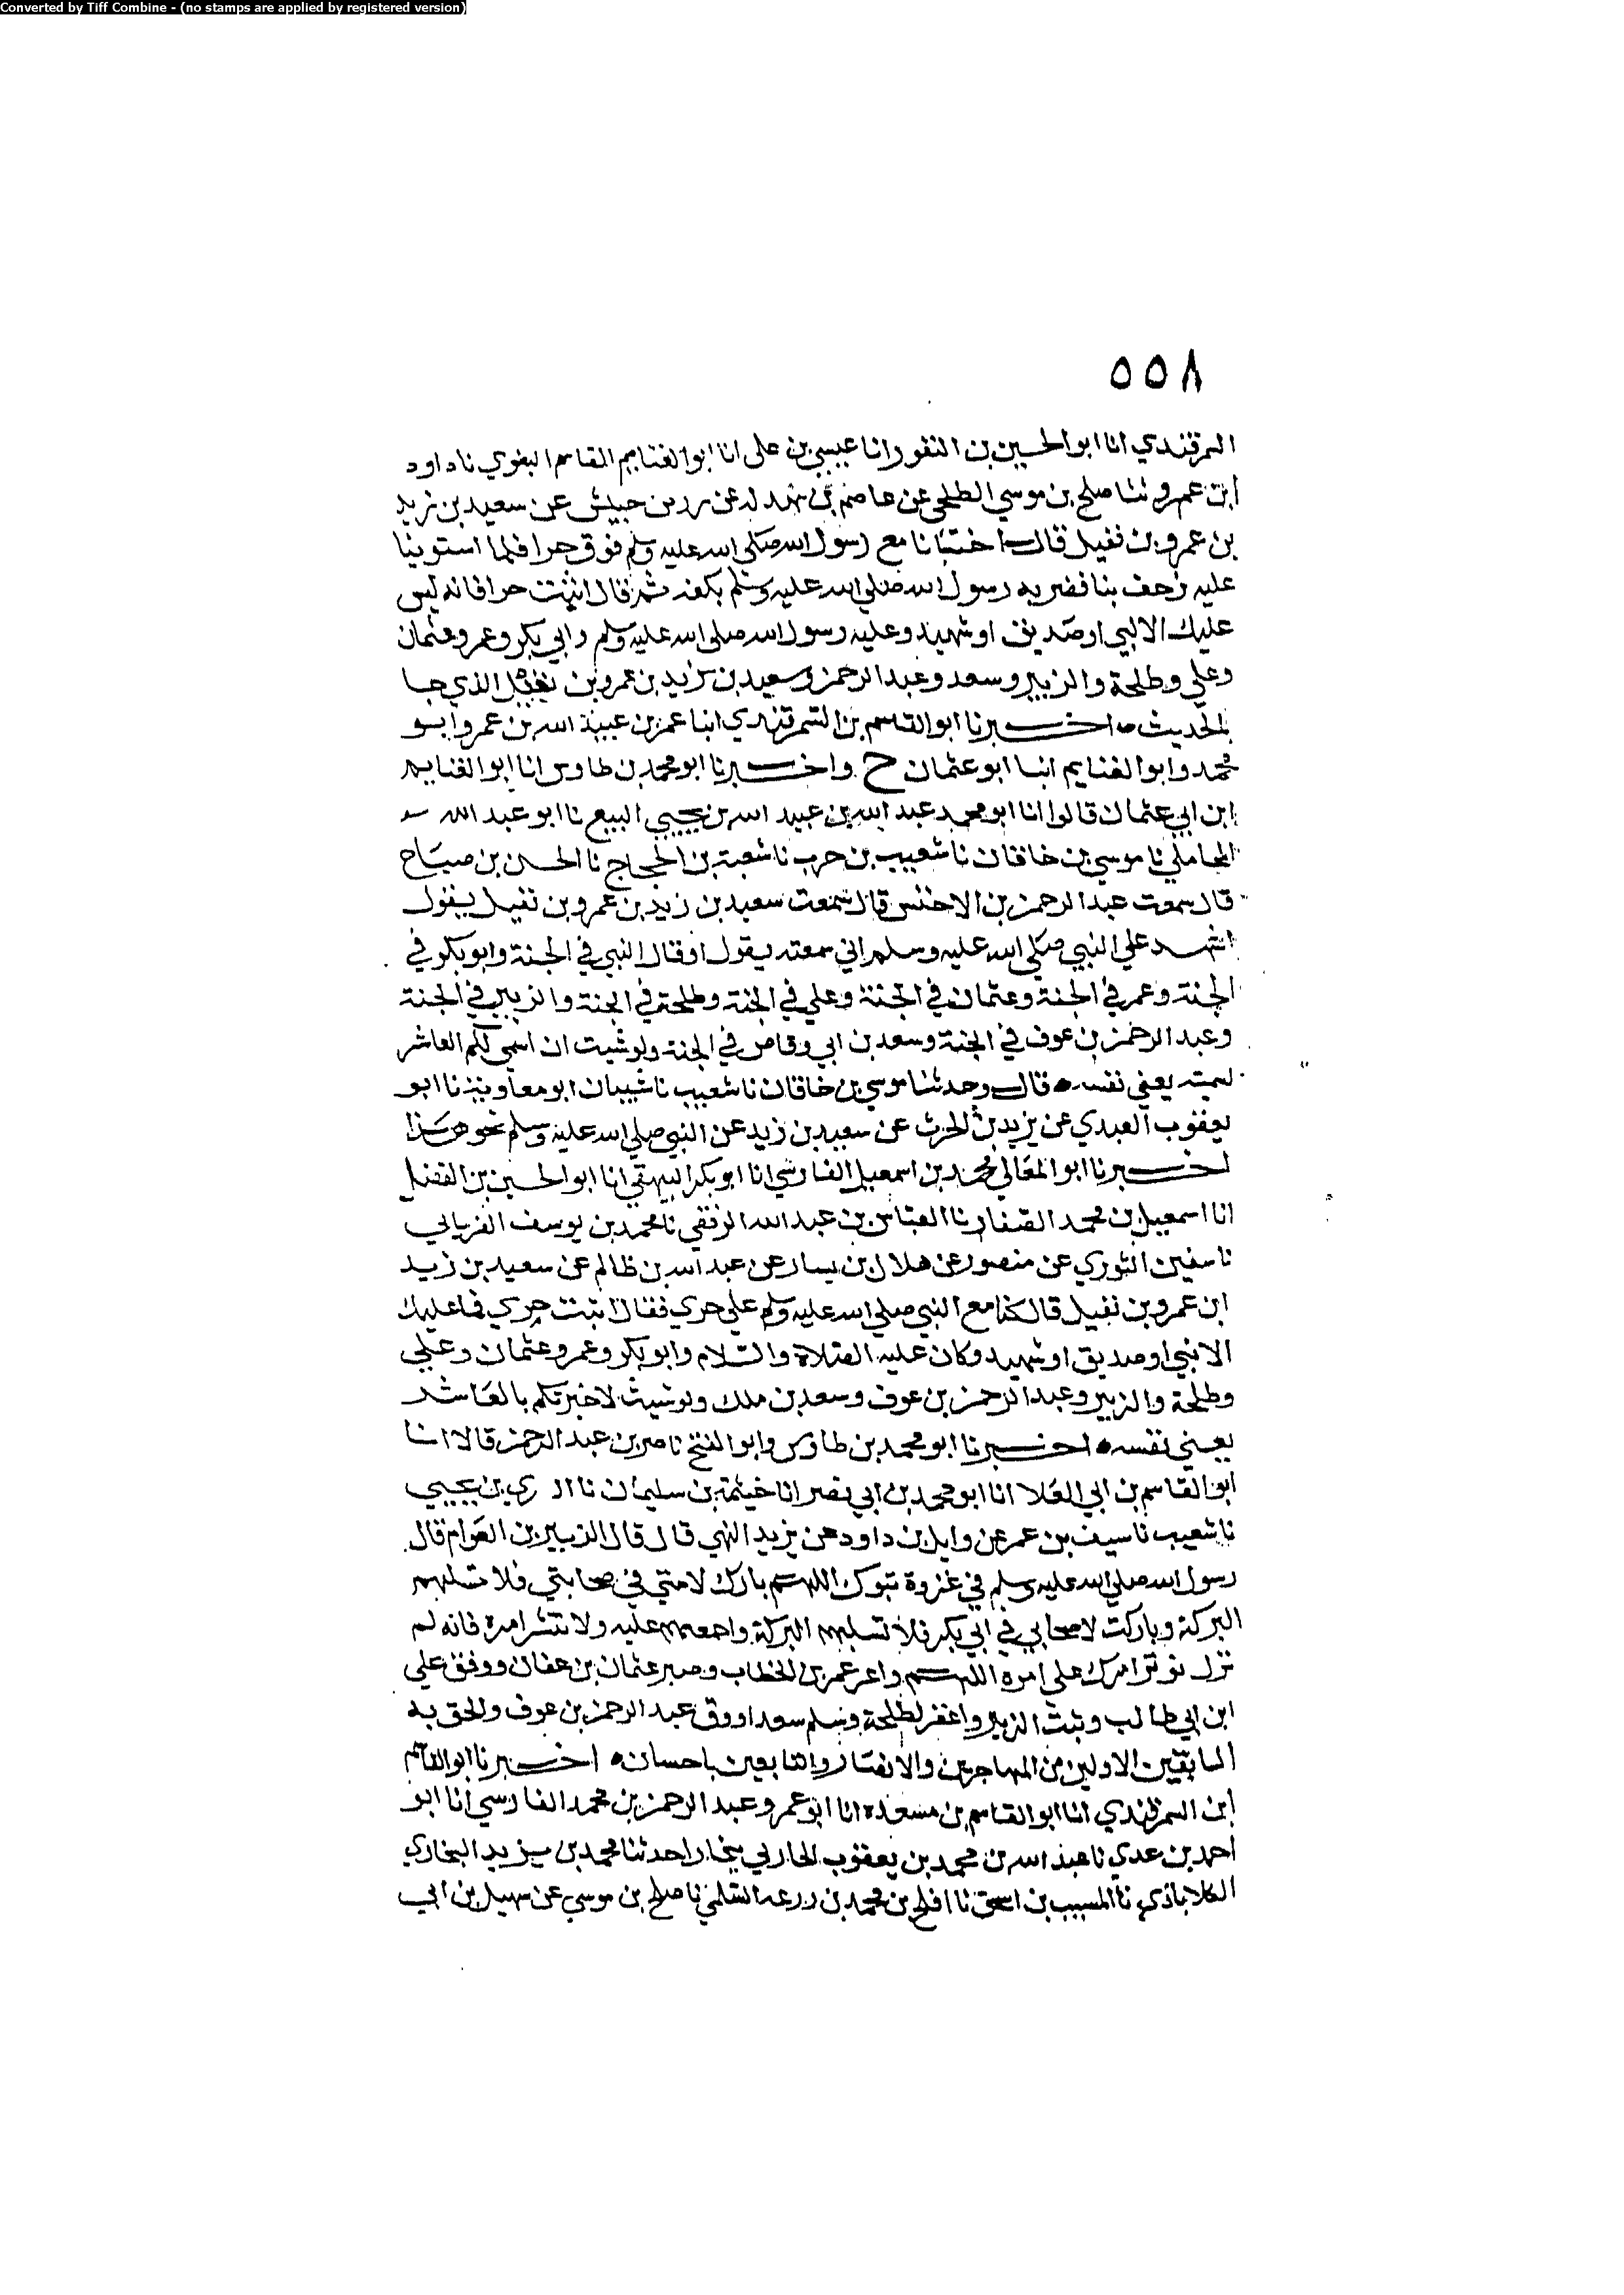 Converted by Tiff Combine - (no stamps are applied by registered version)
٥٥٨
السمرقندي انا ابو الحسين بن النقور انا عيسى بن علي انا ابو القاسم البغوي نا داود
ابن عمرو نا صلح بن موسي الطلحي عن عاصم بن بهدله عن زر بن حبيش عن سعيد بن زيد
بن عمرو بن نفيل قال اختبانا مع رسول الله صلى الله عليه وسلم فوق حرا فلما استوينا
عليه رجف بنا فضربه رسول الله صلي الله عليه وسلم بكفه ثم قال اثبت حرا فانه ليس
عليك الا نبي او صديق او شهيد وعليه رسول الله صلى الله عليه وسلم وابي بكر وعمر وعثمان
وعلي وطلحة والزبير وسعد وعبد الرحمن وسعيد بن زيد بن عمرو بن نفيل الذي جا
بالحديث ه اخبرنا ابو القاسم بن السمرقندي انبا عمر بن عبيد الله بن عمر وابو
محمد وابو الغنايم ابنا ابو عثمان ح واخبرنا ابو محمد بن طاوس انا ابو الغنايم
ابن ابي عثمان قالوا انا ابو محمد عبد الله بن عبيد الله بن يحيي البيع نا ابو عبد الله
المحاملي نا موسي بن خاقان نا شعيب بن حرب نا شعبة بن الحجاج نا الحسن بن صياح
قال سمعت عبد الرحمن بن الاخنس قال سمعت سعيد بن زيد بن عمرو بن نفيل يقول
اشهد علي النبي صلى الله عليه وسلم اني سمعته يقول او قال النبي في الجنة وابو بكر في
الجنة وعمر في الجنة وعثمان في الجنة وعلي في الجنة وطلحة في الجنة والزبير في الجنة
وعبد الرحمن بن عوف في الجنة وسعد بن ابي وقاص في الجنة ولو شيت ان اسمي لكم العاشر
لسميته يعني نفسه ه قال وحدثنا موسي بن خاقان نا شعيب نا شيبان ابو معاوية نا ابو
يعفوب العبدي عن يزيد بن الحرث عن سعيد بن زيد عن النبي صلي الله عليه وسلم نحو هذا
اخبرنا ابو المعالي محمد بن اسمعيل الفارسي انا ابو بكر البيهقي انا ابو الحسين بن الفضل
انا اسمعيل بن محمد الصفار نا العباس بن عبد الله الترقفي نا محمد بن يوسف الفريابي
نا سفين الثوري عن منصور عن هلال بن يسار عن عبد الله بن ظالم عن سعيد بن زيد
ابن عمرو بن نفيل قال كنا مع النبي صلي الله عليه وسلم علي حري فقال اثبت حري فما عليك
الا نبي او صديق او شهيد وكان عليه الصلاة والسلام وابو بكر وعمر وعثمان وعلي
وطلحة والزبير وعبد الرحمن بن عوف وسعد بن ملك ولو شيت لاخبرتكم بالعاشر
يعني نفسه ه اخبرنا ابو محمد بن طاوس وابو الفتح ناصر بن عبد الرحمن قالا انا
ابو القاسم بن ابي العلا انا ابو محمد بن ابي نصر انا خيثمة بن سليمان نا السري بن يحيي
نا شعيب نا سيف بن عمر عن وايل بن داود عن يزيد البهي قال قال الزبير بن العوام قال
رسول الله صلي الله عليه وسلم في غزوة تبوك اللهم بارك لامتي في صحابتي فلا تسلبهم
البركة وباركت لاصحابي في ابي بكر فلا تسلبهم البركة واجمعهم عليه ولا تنثر امره فانه لم
تزل يوثر امرك علي امره اللهم واعز عمر بن الخطاب وصبر عثمان بن عفان ووفق علي
ابن ابي طالب وثبت الزبير واغفر لطلحة وسلم سعدا ووق عبد الرحمن بن عوف والحق به
السابقين الاولين من المهاجرين والانصار والتابعين باحسان ه اخبرنا ابو القاسم
ابن السمرقندي انا ابو القاسم بن مسعده انا ابو عمرو عبد الرحمن بن محمد الفارسي انا ابو
احمد بن عدي نا عبد الله بن محمد بن يعقوب الحاربي ببخارا حدثنا محمد بن يزيد البخاري
الكلاباذي نا المسيب بن اسحق نا افلح بن محمد بن زرعه السلمي نا صلح بن موسي عن سهيل بن ابي